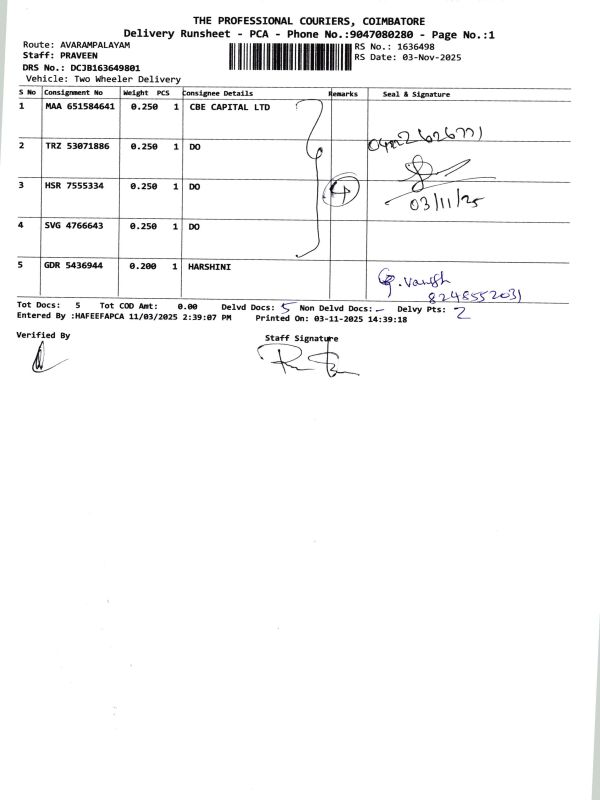 THE PROFESSIONAL COURIERS, COIMBATORE
Delivery Runsheet - PCA - Phone No.:9047080280 - Page No.:1
Route: AVARAMPALAYAM
RS No.: 1636498
Staff: PRAVEEN
RS Date: 03-Nov-2025
DRS No.: DCJB163649801
Vehicle: Two Wheeler Delivery
S No Consignment No Weight PCS Consignee Details Remarks Seal & Signature
1 MAA 651584641 0.250 1 CBE CAPITAL LTD
2 TRZ 53071886 0.250 1 DO
3 HSR 7555334 0.250 1 DO
4
03/11/25
4 SVG 4766643 0.250 1 DO
5 GDR 5436944 0.200 1 HARSHINI
8248552031
Tot Docs: 5 Tot COD Amt: 0.00 Delvd Docs: 5 Non Delvd Docs: - Delvy Pts: 2
Entered By :HAFEEFAPCA 11/03/2025 2:39:07 PM Printed On: 03-11-2025 14:39:18
Verified By
Staff Signature